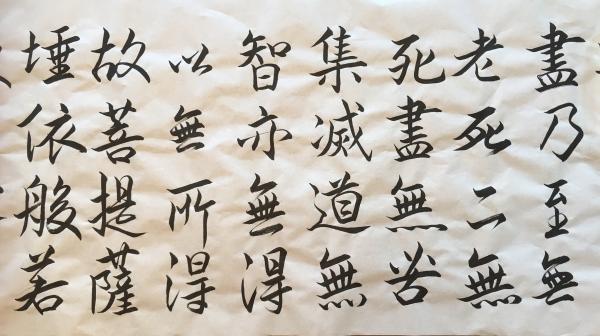 盡乃至無
老死亦無
死盡無苦
集滅道無
智亦無得
以無所得
故菩提薩
埵依般若